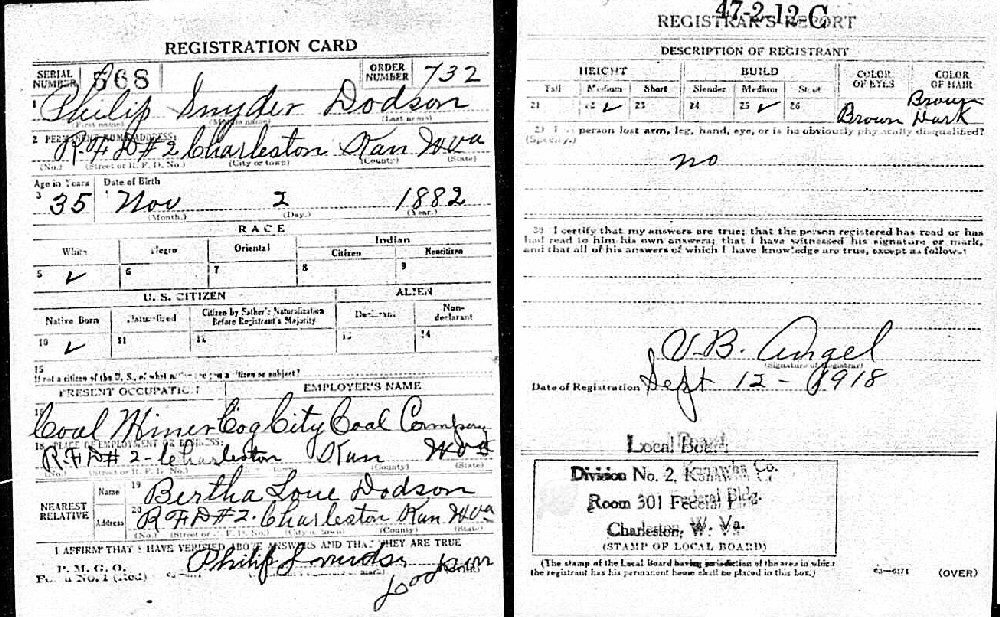 REGISTRATION CARD
SERIAL NUMBER 568 ORDER NUMBER 732
1 Philip Snyder Dodson
(First name) (Middle name) (Last name)
2 PERMANENT HOME ADDRESS:
R F D #2 Charleston Kan W Va
(No.) (Street or R. F. D. No.) (City or town) (County) (State)
Age in Years Date of Birth
3 35 Nov 2 1882
(Month.) (Day.) (Year.)
RACE
White Negro Oriental Indian
Citizen Noncitizen
5 ✓ 6 7 8 9
U. S. CITIZEN ALIEN
Native Born Naturalized Citizen by Father's Naturalization Before Registrant's Majority Declarant Non-declarant
10 ✓ 11 12 13 14
15
If not a citizen of the U. S., of what nation are you a citizen or subject?
PRESENT OCCUPATION EMPLOYER'S NAME
16 Coal Miner Coal Company
18 PLACE OF EMPLOYMENT OR BUSINESS:
R F D #2 - Charleston Kan W Va
(No.) (Street or R. F. D. No.) (County) (State)
NEAREST RELATIVE Name 19 Bertha Dodson
Address 20 R F D #2. Charleston Kan W Va
(No.) (Street or R. F. D. No.) (City or town) (County) (State)
I AFFIRM THAT I HAVE VERIFIED ABOVE ANSWERS AND THAT THEY ARE TRUE
P. M. G. O.
Form No. 1 (Red) Philip Snyder Dodson
47-2-12-C
REGISTRAR'S REPORT
DESCRIPTION OF REGISTRANT
HEIGHT BUILD COLOR OF EYES COLOR OF HAIR
Tall Medium Short Slender Medium Stout
21 22 ✓ 23 24 25 ✓ 26 Brown Dark Brown
29 Has person lost arm, leg, hand, eye, or is he obviously physically disqualified?
(Specify.)
no
30 I certify that my answers are true; that the person registered has read or has
had read to him his own answers; that I have witnessed his signature or mark,
and that all of his answers of which I have knowledge are true, except as follows:
V. B. Angel
(Signature of Registrar)
Date of Registration Sept 12 - 1918
Local Board
Division No. 2, Kanawha Co.
Room 301 Federal Bldg.
Charleston, W. Va.
(STAMP OF LOCAL BOARD)
(The stamp of the Local Board having jurisdiction of the area in which
the registrant has his permanent home shall be placed in this box.)
03—6171 (OVER)